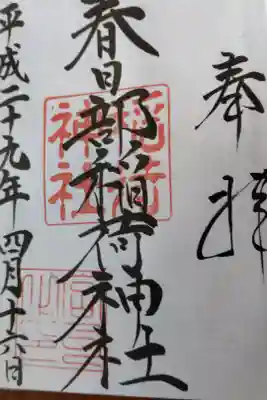 奉拝
春日部稲荷神社
稲荷神社
平成二十九年四月十六日